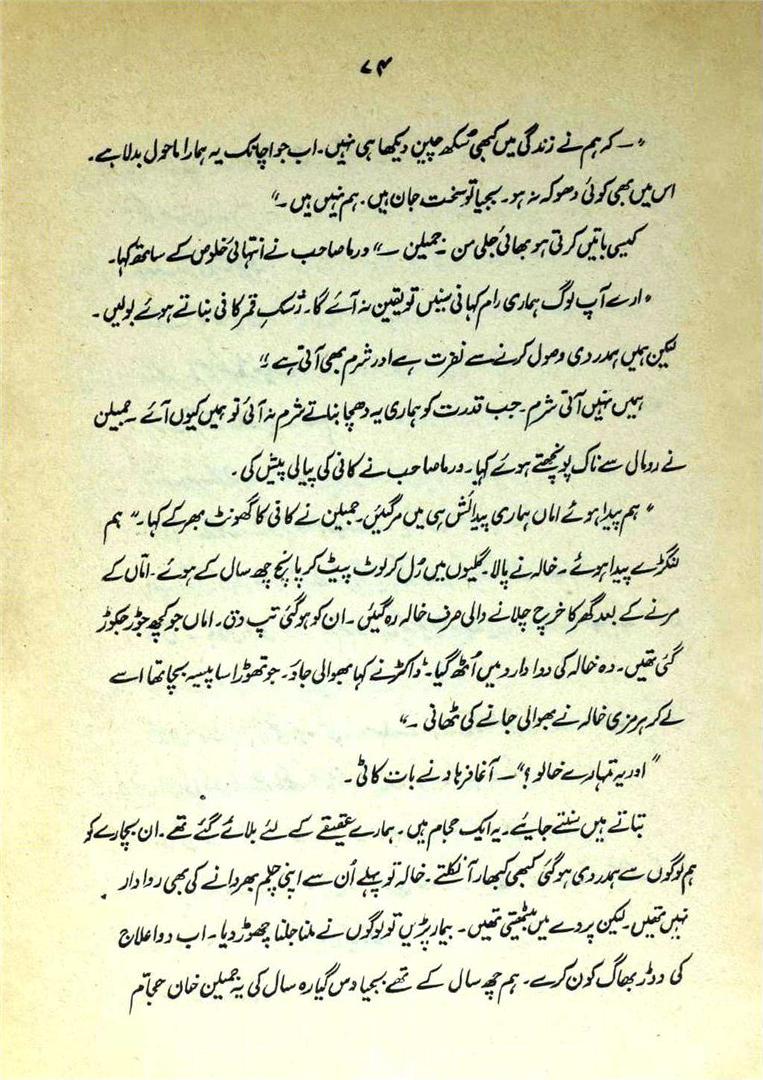 ۷۴
"— کہ ہم نے زندگی میں کبھی سُکھ چین دیکھا ہی نہیں۔ اب جو اچانک یہ ہمارا ماحول بدلا ہے۔
اس میں بھی کوئی دھوکہ نہ ہو۔ بجیا تو سخت جان ہیں۔ ہم نہیں ہیں۔"
کیسی باتیں کرتی ہو بھائی جلی من۔ جمیلن —" ورما صاحب نے انتہائی خلوص کے ساتھ کہا۔
"ارے آپ لوگ ہماری رام کہانی سنیں تو یقین نہ آئے گا۔ رُشکِ قمر کافی بناتے ہوئے بولیں۔
لیکن ہمیں ہمدردی وصول کرنے سے نفرت ہے اور شرم بھی آتی ہے"
ہمیں نہیں آتی شرم۔ جب قدرت کو ہماری یہ دھچا بناتے شرم نہ آئی تو ہمیں کیوں آئے۔ جمیلن
نے رومال سے ناک پونچھتے ہوئے کہا۔ ورما صاحب نے کافی کی پیالی پیش کی۔
"ہم پیدا ہوئے اماں ہماری پیدائش ہی میں مرگئیں۔ جمیلن نے کافی کا گھونٹ بھر کے کہا۔" ہم
لنگڑے پیدا ہوئے۔ خالہ نے پالا۔ گلیوں میں رُل کر لوٹ پیٹ کر پانچ چھ سال کے ہوئے۔ اماّں کے
مرنے کے بعد گھر کا خرچ چلانے والی صرف خالہ رہ گئیں۔ ان کو ہوگئی تپ دق۔ اماں جو کچھ جوڑ جکوڑ
گئی تھیں۔ وہ خالہ کی دوا دارو میں اُٹھ گیا۔ ڈاکٹر نے کہا بھوالی جاؤ۔ جو تھوڑا سا پیسہ بچا تھا اسے
لے کر ہرمزی خالہ نے بھوالی جانے کی ٹھانی۔"
"اور یہ تمہارے خالو؟" — آغا فرہاد نے بات کاٹی۔
بتاتے ہیں سنتے جایئے۔ یہ ایک حجام ہیں۔ ہمارے عقیقے کے لئے بلائے گئے تھے۔ ان بچارے کو
ہم لوگوں سے ہمدردی ہوگئی کبھی کبھار آ نکلتے۔ خالہ تو پہلے اُن سے اپنی چلم بھروانے کی بھی روادار
نہیں تھیں۔ لیکن پردے میں بیٹھتی تھیں۔ بیمار پڑیں تو لوگوں نے ملنا جلنا چھوڑ دیا۔ اب دوا علاج
کی دوڑ بھاگ کون کرے۔ ہم چھ سال کے تھے بجیا دس گیارہ سال کی یہ جمیلن خان حجاّم